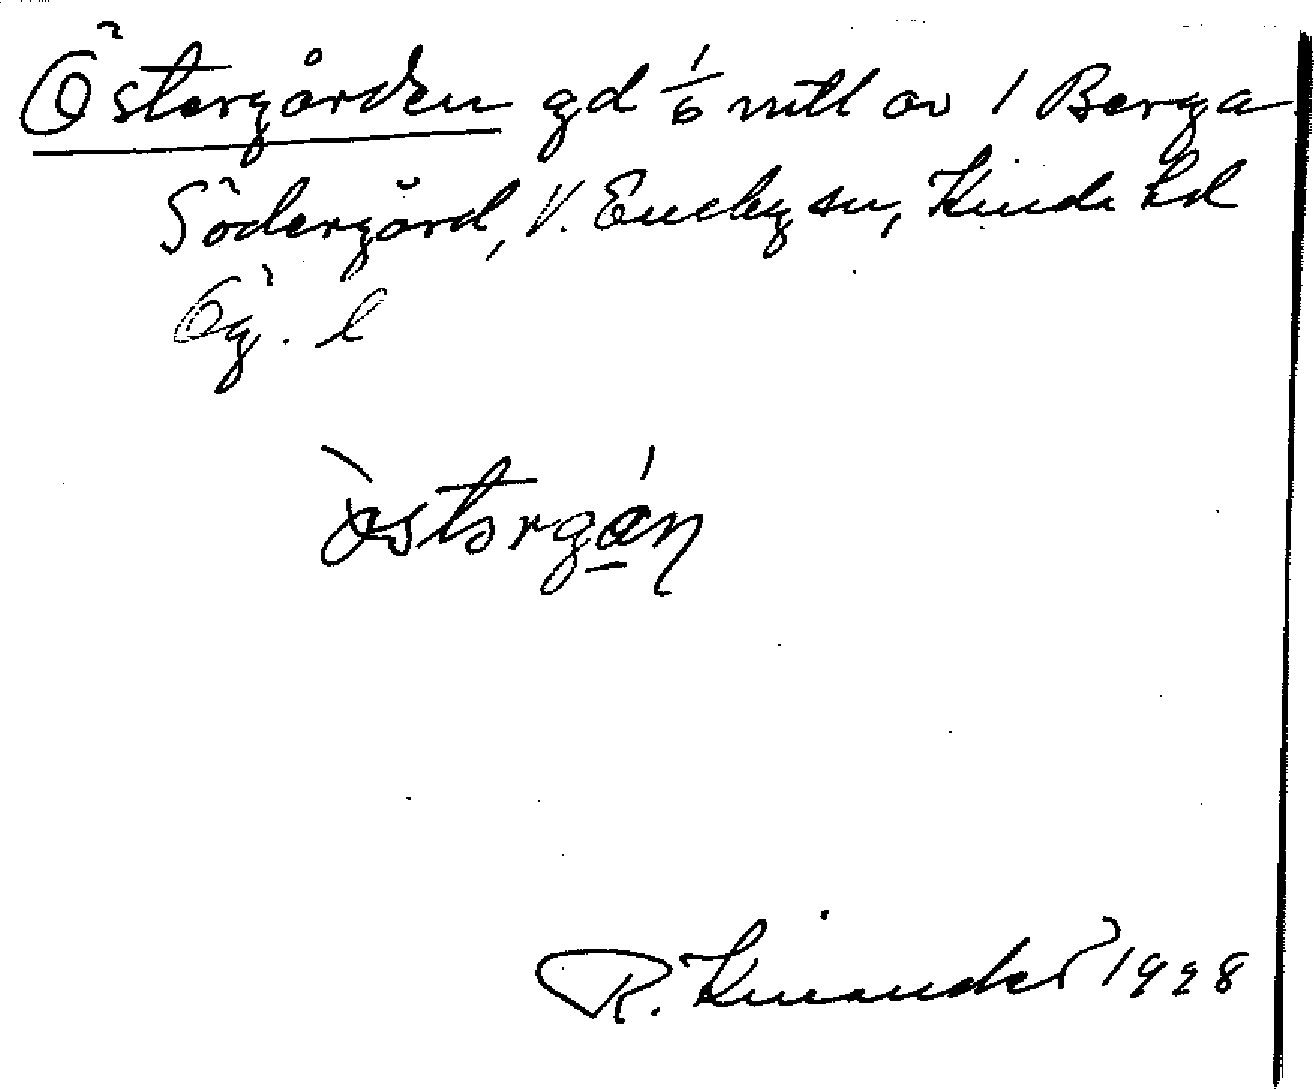 Östergården gd 1/6 mtl av 1 Berga
Södergård, V. Eneby sn, Kinda hd
Ög. l
R. Kinander 1928